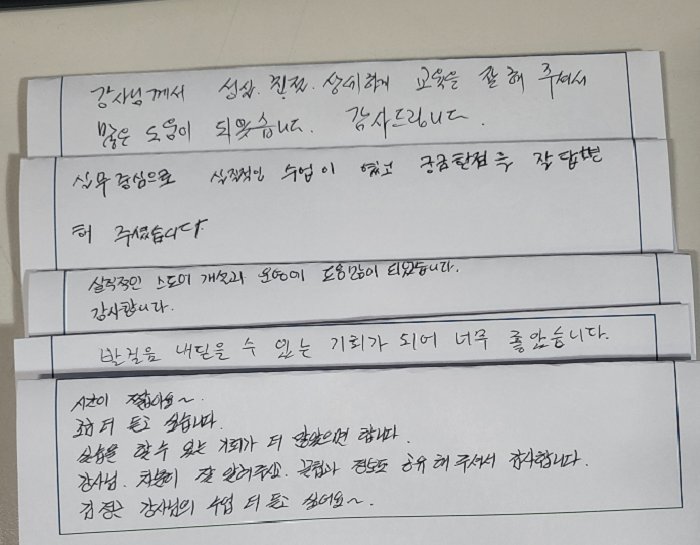 강사님께서 성심. 진정. 상세하게 교육을 잘 해 주셔서
많은 도움이 되었습니다. 감사드립니다.
실무중심으로 실질적인 수업이 였고 궁금한점을 잘 답변
해 주셨습니다.
실질적인 스토어 개설과 운영에 도움많이 되었습니다.
감사합니다.
발걸음 내딛을 수 있는 기회가 되어 너무 좋았습니다.
시간이 짧아요~
조금 더 듣고 싶습니다.
실습을 할 수 있는 기회가 더 많았으면 합니다.
강사님. 차분히 잘 알려주시고. 꿀팁과 정보도 공유 해 주셔서 감사합니다.
강사님의 수업 더 듣고 싶어요~.